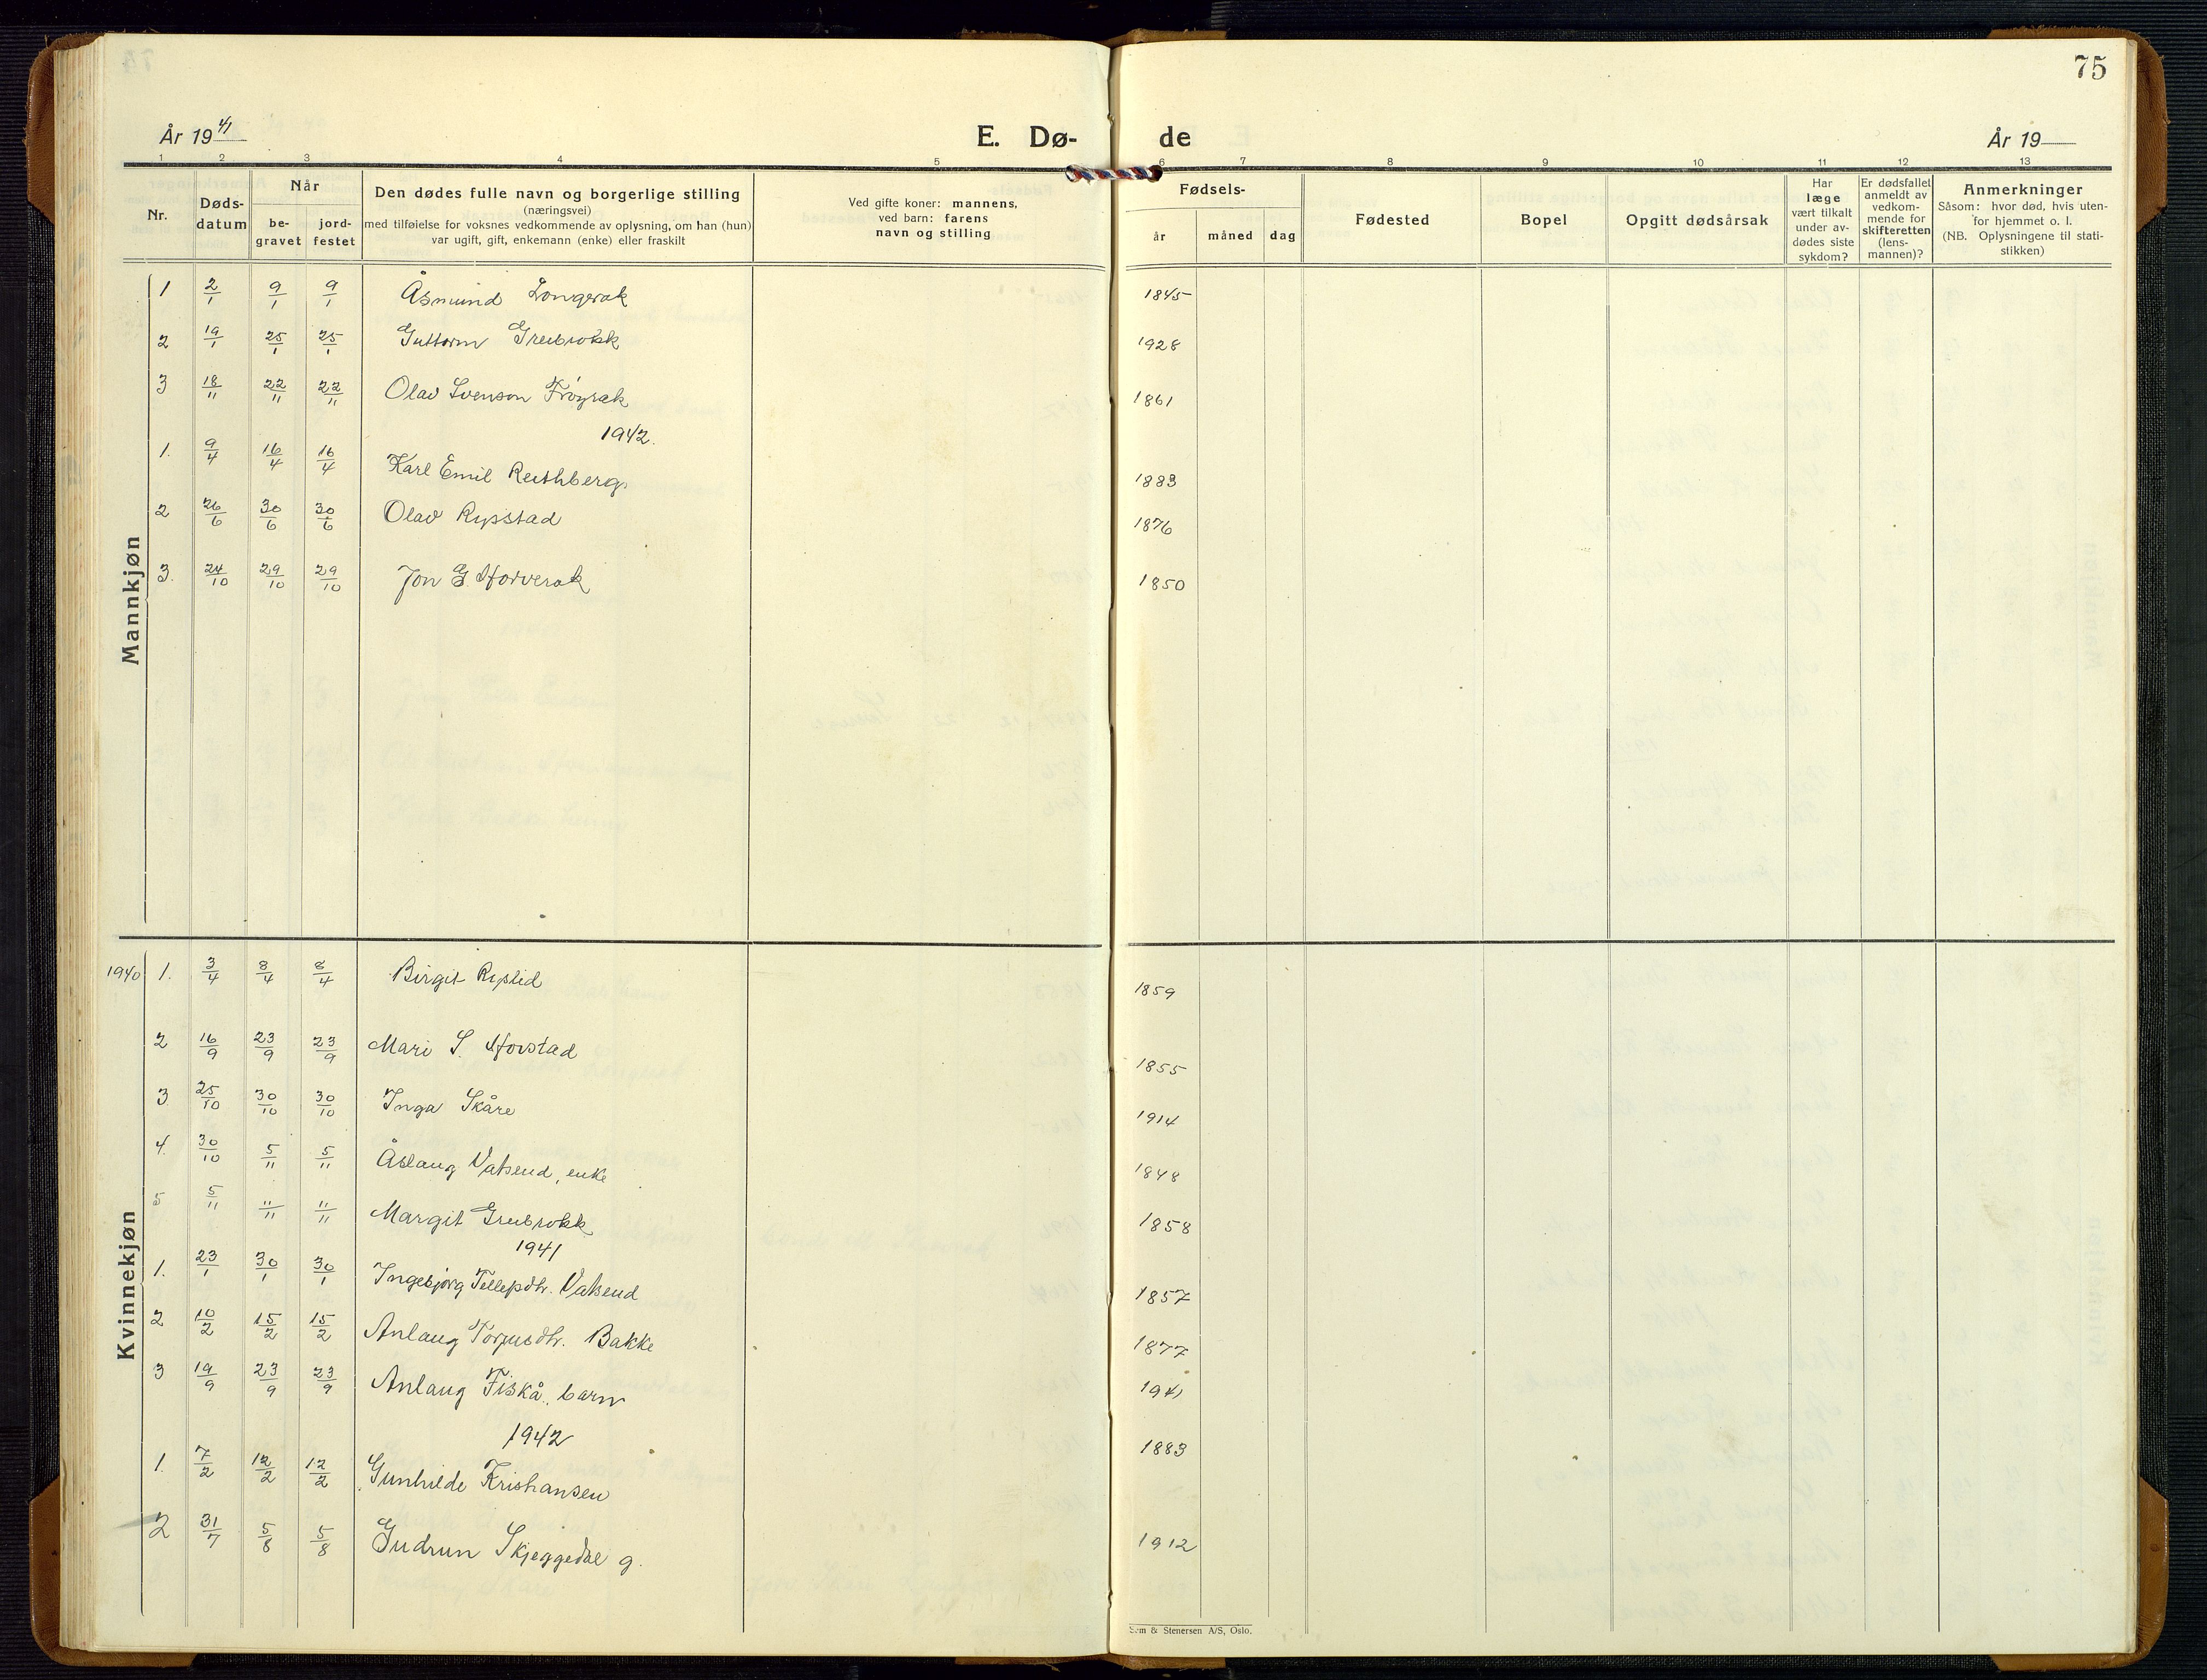 75
År 19 41 E. Dø- de År 19
1 2 3 4 5 6 7 8 9 10 11 12 13
Nr.
Døds-
datum
Når
be-
gravet
jord-
festet
Den dødes fulle navn og borgerlige stilling
(næringsvei)
med tilføielse for voksnes vedkommende av oplysning, om han (hun)
var ugift, gift, enkemann (enke) eller fraskilt
Ved gifte koner: mannens,
ved barn: farens
navn og stilling
Fødsels-
år måned dag
Fødested
Bopel
Opgitt dødsårsak
Har
læge
vært tilkalt
under av-
dødes siste
sykdom?
Er dødsfallet
anmeldt av
vedkom-
mende for
skifteretten
(lens-
mannen)?
Anmerkninger
Såsom: hvor død, hvis uten-
for hjemmet o. l.
(NB. Oplysningene til stati-
stikken)
Mannkjøn
1 2/1 9/1 9/1 Åsmund Longerak 1845
2 19/1 25/1 25/1 Guttorm Greibrokk 1928
3 18/11 22/11 22/11 Olav Svenson Frøyrak 1861
1942.
1. 9/4 16/4 16/4 Karl Emil Reithberg 1883
2 26/6 30/6 30/6 Olav Rysstad 1876
3. 24/10 29/10 29/10 Jon G. Horverak 1850
Kvinnekjøn
1940 1. 3/4 8/4 8/4 Birgit 1859
2 16/9 23/9 23/9 Mari S. Horstad 1855
3 25/10 30/10 30/10 Inga Skåre 1914
4. 30/10 5/11 5/11 Åslaug Vatsend, enke 1848
5 5/11 11/11 11/11 Margit Greibrokk 1858
1941
1. 23/1 30/1 30/1 Ingebjørg Tellefsdtr. Vatsend 1857
2 10/2 15/2 15/2 Anlaug Torjusdtr. Bakke 1877
3 19/9 23/9 23/9 Anlaug Fiskå, barn 1941
1942
1. 7/2 12/2 12/2 Gunhilde Kristiansen 1883
2 31/7 5/8 5/8 Gudrun Skjeggedal g. 1912
Sem & Stenersen A/S, Oslo.